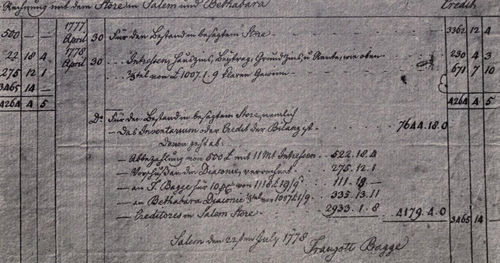 Rechnung mit dem Store in Salem und Bethabara Credit
500 — — 1777 April 30 Für den Bestand in besagtem Store 3362 12 4
22 18 4 1778 April 30 Interessen, Hauszins, Beytrag, Grundzins, u Rente, wie oben 230 4 3
275 12 1 von £ 1007.1.9 klaren Gewinn 671 7 10
3465 14 —
4264 4 5 4264 4 5
Do Für den Bestand in besagtem Store, nemlich
— Das Inventarium oder Credit der Bilanz ist 7644.18.0
Davon geht ab
— Abbezahlung von 500 £ mit 11 Mt Interessen 522.18.4
— Vorschuß an die Diaconie, 275.12.1
— an T. Bagge für 10 pCt von 1118 £ 19/9 111.18.—
— an Bethabara Diaconie von 1007.£1/9 335.13.11
— Creditores in Salem Store 2933.1.8 4179.4.0 3465 14 —
Salem den 22sten July 1778
Traugott Bagge